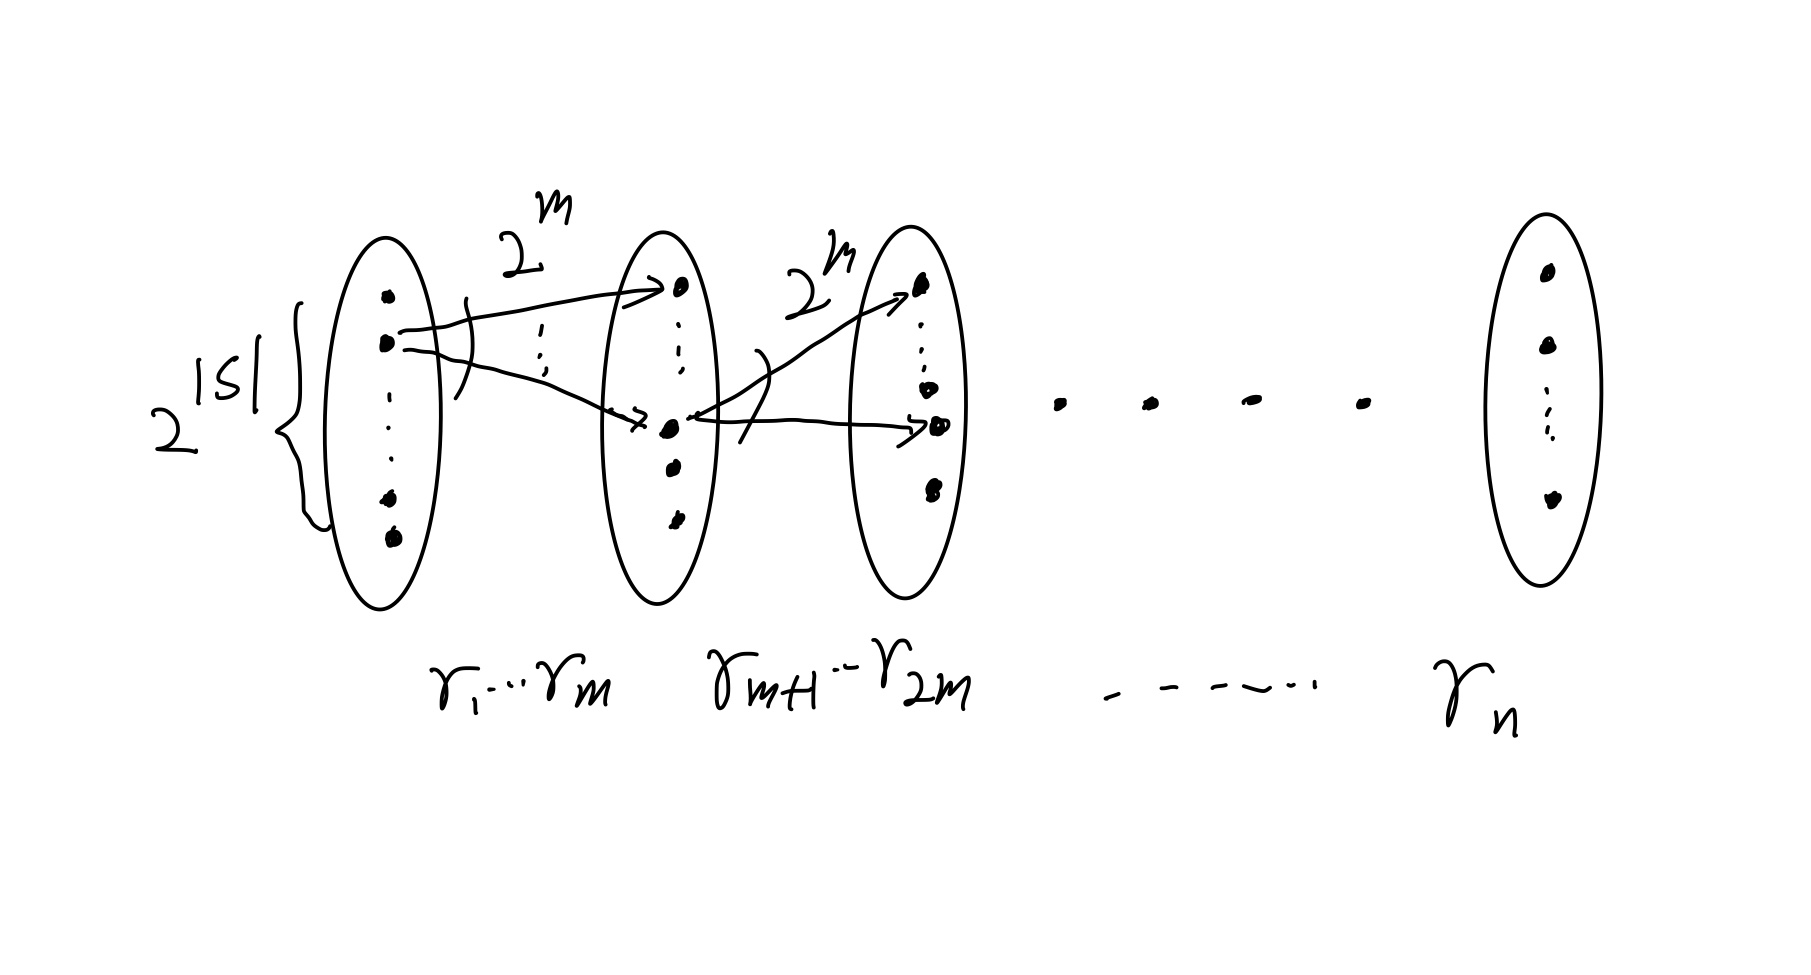 2^m 2^m
2^|S|
r_1 ... r_m r_{m+1} ... r_{2m} ....... r_n